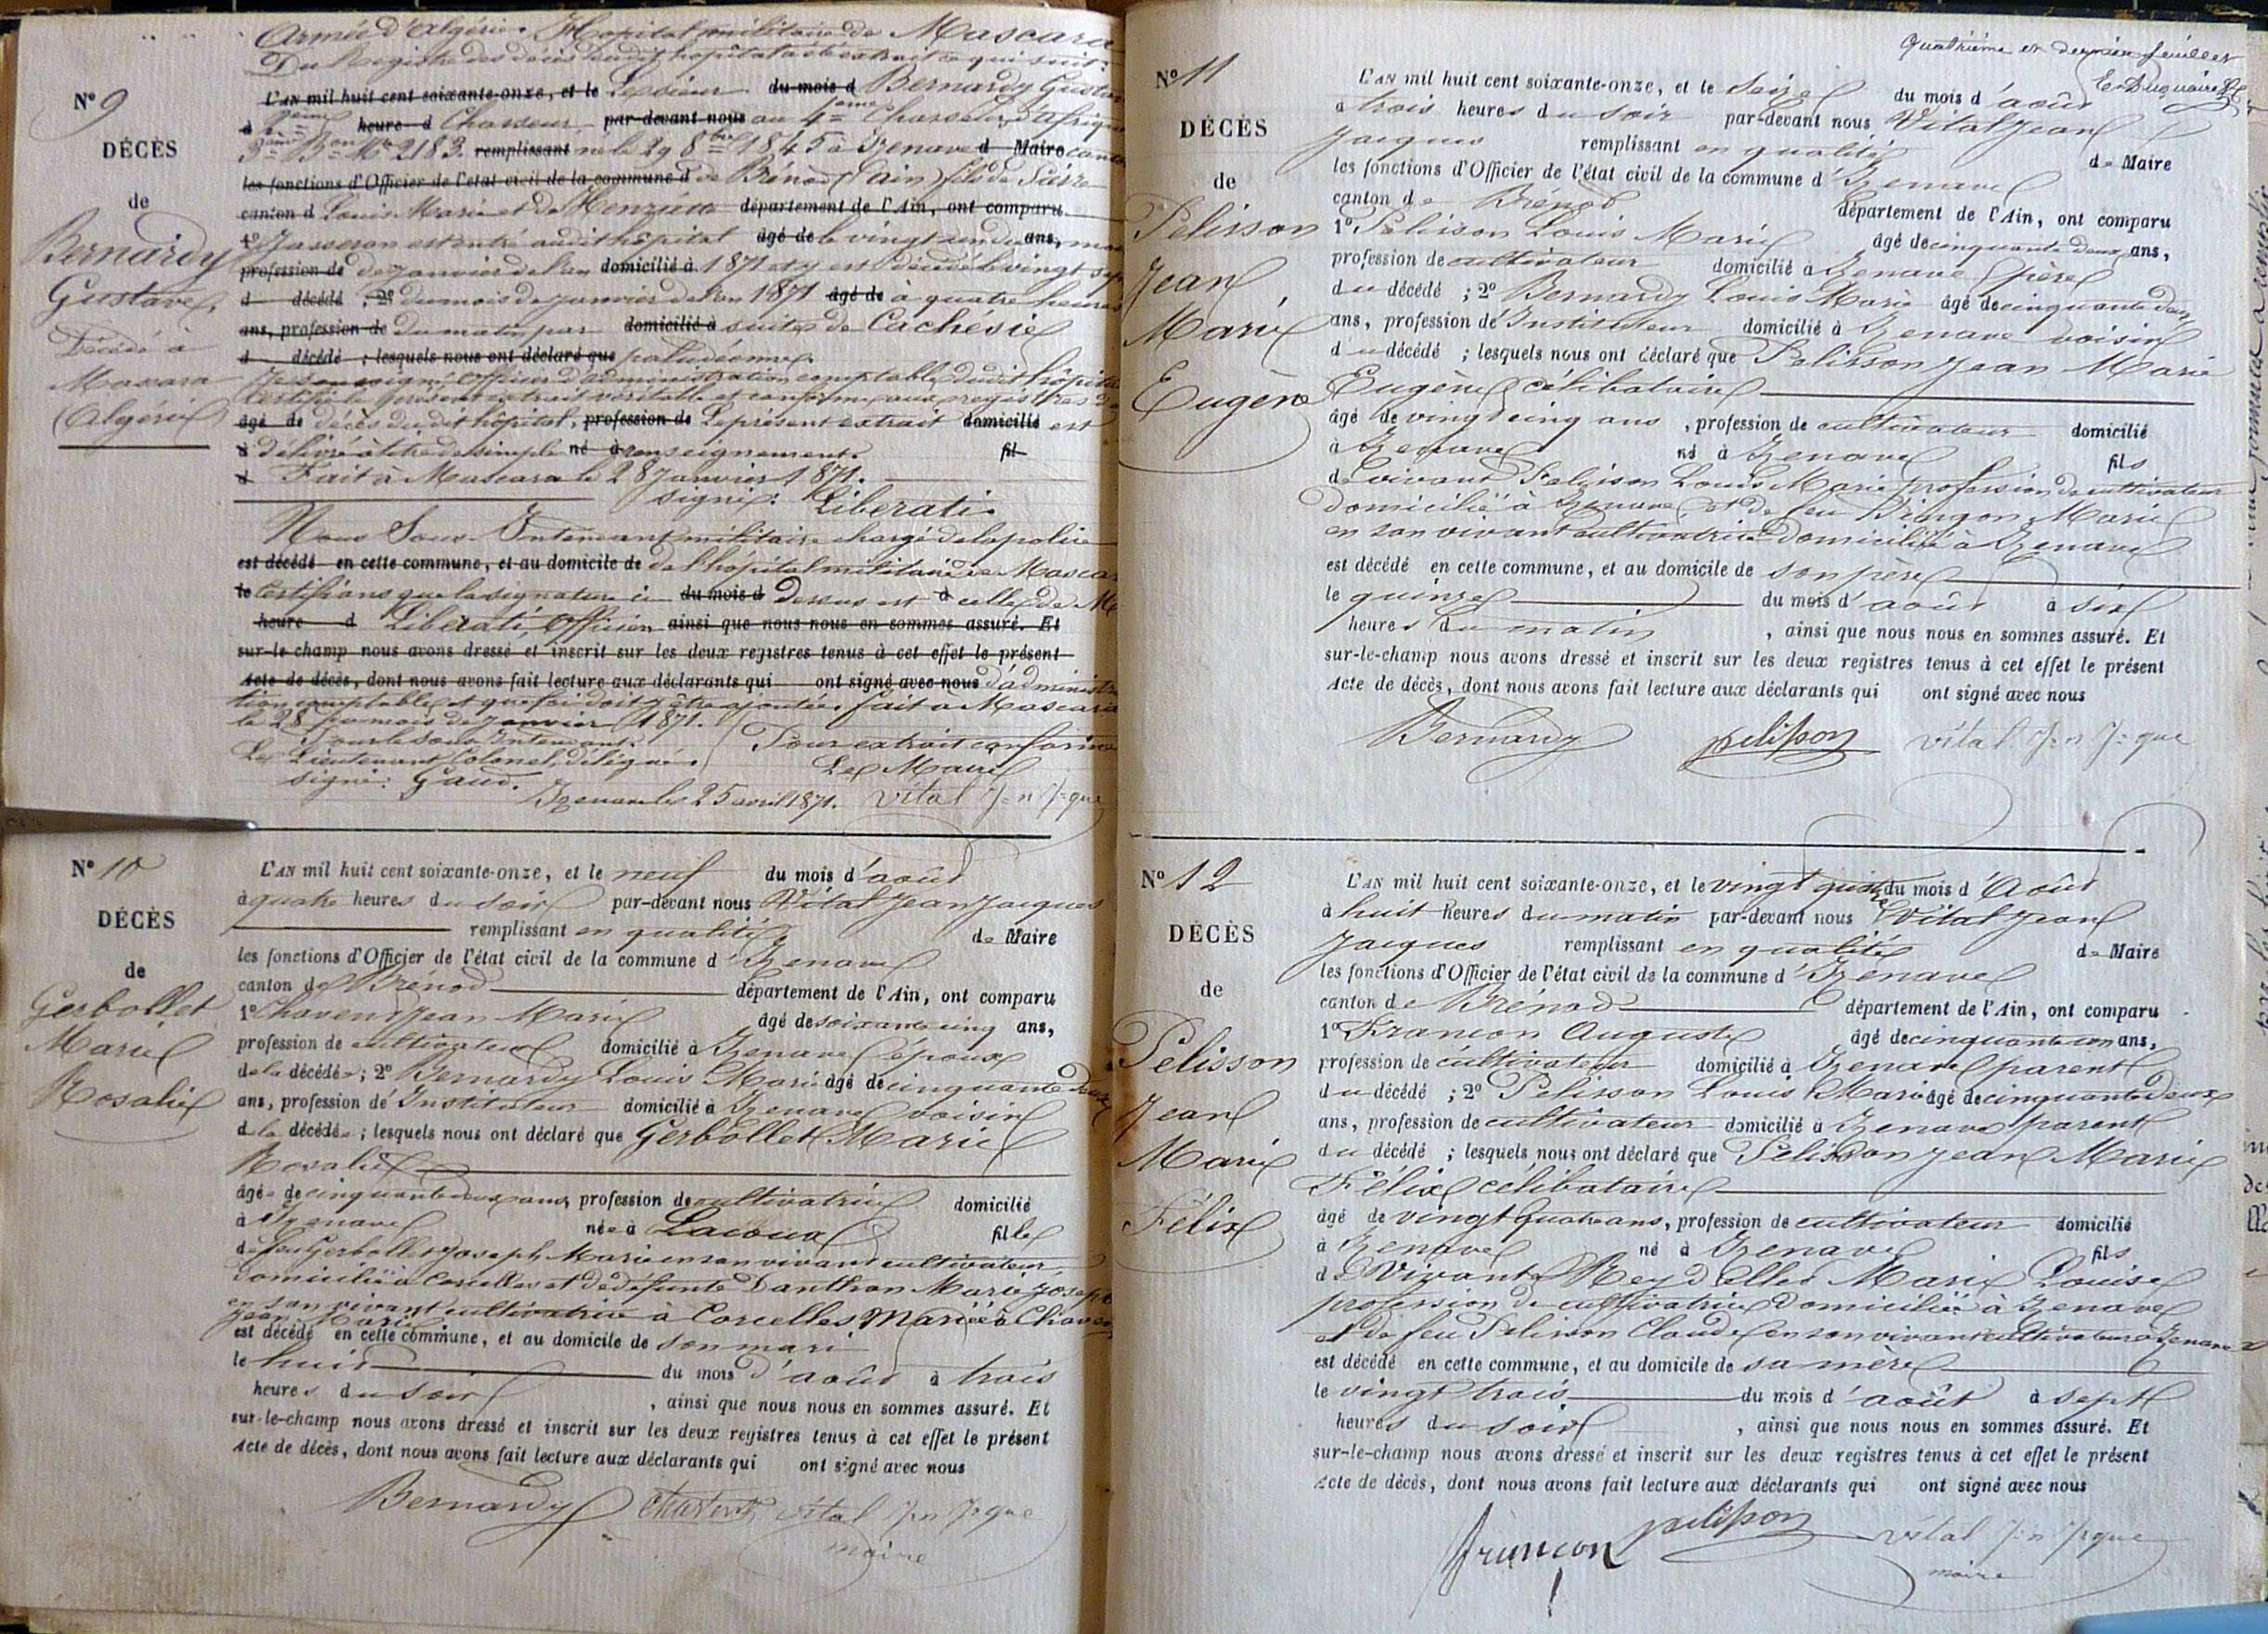 Armée d'Algérie. Hopital militaire de Mascara
Du Registre des décès dudit hôpital a été extrait ce qui suit:
N° 9
L'AN mil huit cent soixante-onze, et le Le sieur du mois d Bernardy Gustave
heure d Chasseur par-devant nous au 4eme Chasseurs d'afrique
DÉCÈS
Mle 2183. remplissant né le 29 8bre 1845 à Izenave d Maire canton
les fonctions d'Officier de l'état civil de la commune d de Brénod (Ain) fils de
de
canton d Louis Marie et de département de l'Ain, ont comparu
Bernardy
1° Jasseron est entré audit hôpital âgé de le vingt un du ans, mois
profession de de janvier de l'an domicilié à 1871 et y est décédé le vingt sept
Gustave,
d décédé ; 2° du mois de janvier de l'an 1871 âgé de à quatre heures
ans, profession de du matin par domicilié à suite de Cachésie
Décédé à
d décédé ; lesquels nous ont déclaré que paludéenne.
Mascara
Je soussigné, officier d'administration comptable dudit hôpital
certifie le présent extrait véritable et conforme aux registres de
(Algérie)
âgé de décès dudit hôpital, profession de Le présent extrait domicilié est
à délivré à titre de simple né à renseignement. fil
d Fait à Mascara le 28 Janvier 1871.
signé: Liberati.
Nous Sous-Intendant militaire chargé de la police
est décédé en cette commune, et au domicile de de l'hôpital militaire de Mascara
le Certifions que la signature ci du mois d dessus est à celle de Mr
heure d Liberati, Officier ainsi que nous nous en sommes assuré. Et
sur-le-champ nous avons dressé et inscrit sur les deux registres tenus à cet effet le présent
Acte de décès, dont nous avons fait lecture aux déclarants qui ont signé avec nous d'administra
tion comptable et que foi doit y être ajoutée, fait à Mascara
le 28 du mois de janvier 1871.
Pour le sous Intendant. Pour extrait conforme
Le Lieutenant Colonel délégué. Le Maire
signé: Gaud.
Izenave le 25 avril 1871. Vital Jn Jque
N° 10
L'AN mil huit cent soixante-onze, et le neuf du mois d'août
à quatre heures du soir par-devant nous Vital Jean Jacques
DÉCÈS
remplissant en qualité de Maire
les fonctions d'Officier de l'état civil de la commune d'Izenave
de
canton de Brénod département de l'Ain, ont comparu
Gerbollet
1° Chavent Jean Marie âgé de soixante cinq ans,
Marie
profession de cultivateur domicilié à Izenave époux
de la décédée ; 2° Bernardy Louis Marie âgé de cinquante deux
Rosalie
ans, profession d'Instituteur domicilié à Izenave voisin
de la décédée ; lesquels nous ont déclaré que Gerbollet Marie
Rosalie
âgée de cinquante deux ans, profession de cultivatrice domicilié
à Izenave née à Lacoux fille
de feu Gerbollet Joseph Marie en son vivant cultivateur
domicilié à Corcelles et de défunte Danthon Marie Josephte
en son vivant cultivatrice à Corcelles Mariée à Chavent
Jean Marie
est décédé en cette commune, et au domicile de son mari
le huit du mois d'août à trois
heures du soir , ainsi que nous nous en sommes assuré. Et
sur-le-champ nous avons dressé et inscrit sur les deux registres tenus à cet effet le présent
Acte de décès, dont nous avons fait lecture aux déclarants qui ont signé avec nous
Bernardy Chavent Vital Jn Jque
maire
Quatrième et dernier feuillet
N° 11
L'AN mil huit cent soixante-onze, et le Seize du mois d'août
à trois heures du soir par-devant nous Vital Jean
DÉCÈS
Jacques remplissant en qualité de Maire
les fonctions d'Officier de l'état civil de la commune d'Izenave
de
canton de Brénod département de l'Ain, ont comparu
Pelisson
1° Pelisson Louis Marie âgé de cinquante deux ans,
profession de cultivateur domicilié à Izenave père
Jean
du décédé ; 2° Bernardy Louis Marie âgé de cinquante deux
Marie
ans, profession d'Instituteur domicilié à Izenave voisin
du décédé ; lesquels nous ont déclaré que Pelisson Jean Marie
Eugène
Eugène célibataire
âgé de vingt cinq ans , profession de cultivateur domicilié
à Izenave né à Izenave fils
de vivant Pelisson Louis Marie profession de cultivateur
domicilié à Izenave et de feu Marie
en son vivant cultivatrice domiciliée à Izenave
est décédé en cette commune, et au domicile de son père
le quinze du mois d'août à six
heures du matin , ainsi que nous nous en sommes assuré. Et
sur-le-champ nous avons dressé et inscrit sur les deux registres tenus à cet effet le présent
Acte de décès, dont nous avons fait lecture aux déclarants qui ont signé avec nous
Bernardy pelisson Vital Jn Jque
N° 12
L'AN mil huit cent soixante-onze, et le vingt quatre du mois d'Août
à huit heures du matin par-devant nous Vital Jean
DÉCÈS
Jacques remplissant en qualité de Maire
les fonctions d'Officier de l'état civil de la commune d'Izenave
de
canton de Brénod département de l'Ain, ont comparu
1° Françon Auguste âgé de cinquante un ans,
Pelisson
profession de cultivateur domicilié à Izenave parent
du décédé ; 2° Pelisson Louis Marie âgé de cinquante deux
Jean
ans, profession de cultivateur domicilié à Izenave parent
Marie
du décédé ; lesquels nous ont déclaré que Pelisson Jean Marie
Félix célibataire
Félix
âgé de vingt quatre ans, profession de cultivateur domicilié
à Izenave né à Izenave fils
de Vivante Reydellet Marie Louise
profession de cultivatrice domiciliée à Izenave
et de feu Pelisson Claude en son vivant cultivateur à Izenave
est décédé en cette commune, et au domicile de sa mère
le vingt trois du mois d'août à sept
heures du soir , ainsi que nous nous en sommes assuré. Et
sur-le-champ nous avons dressé et inscrit sur les deux registres tenus à cet effet le présent
Acte de décès, dont nous avons fait lecture aux déclarants qui ont signé avec nous
françon pelisson Vital Jn Jque
maire